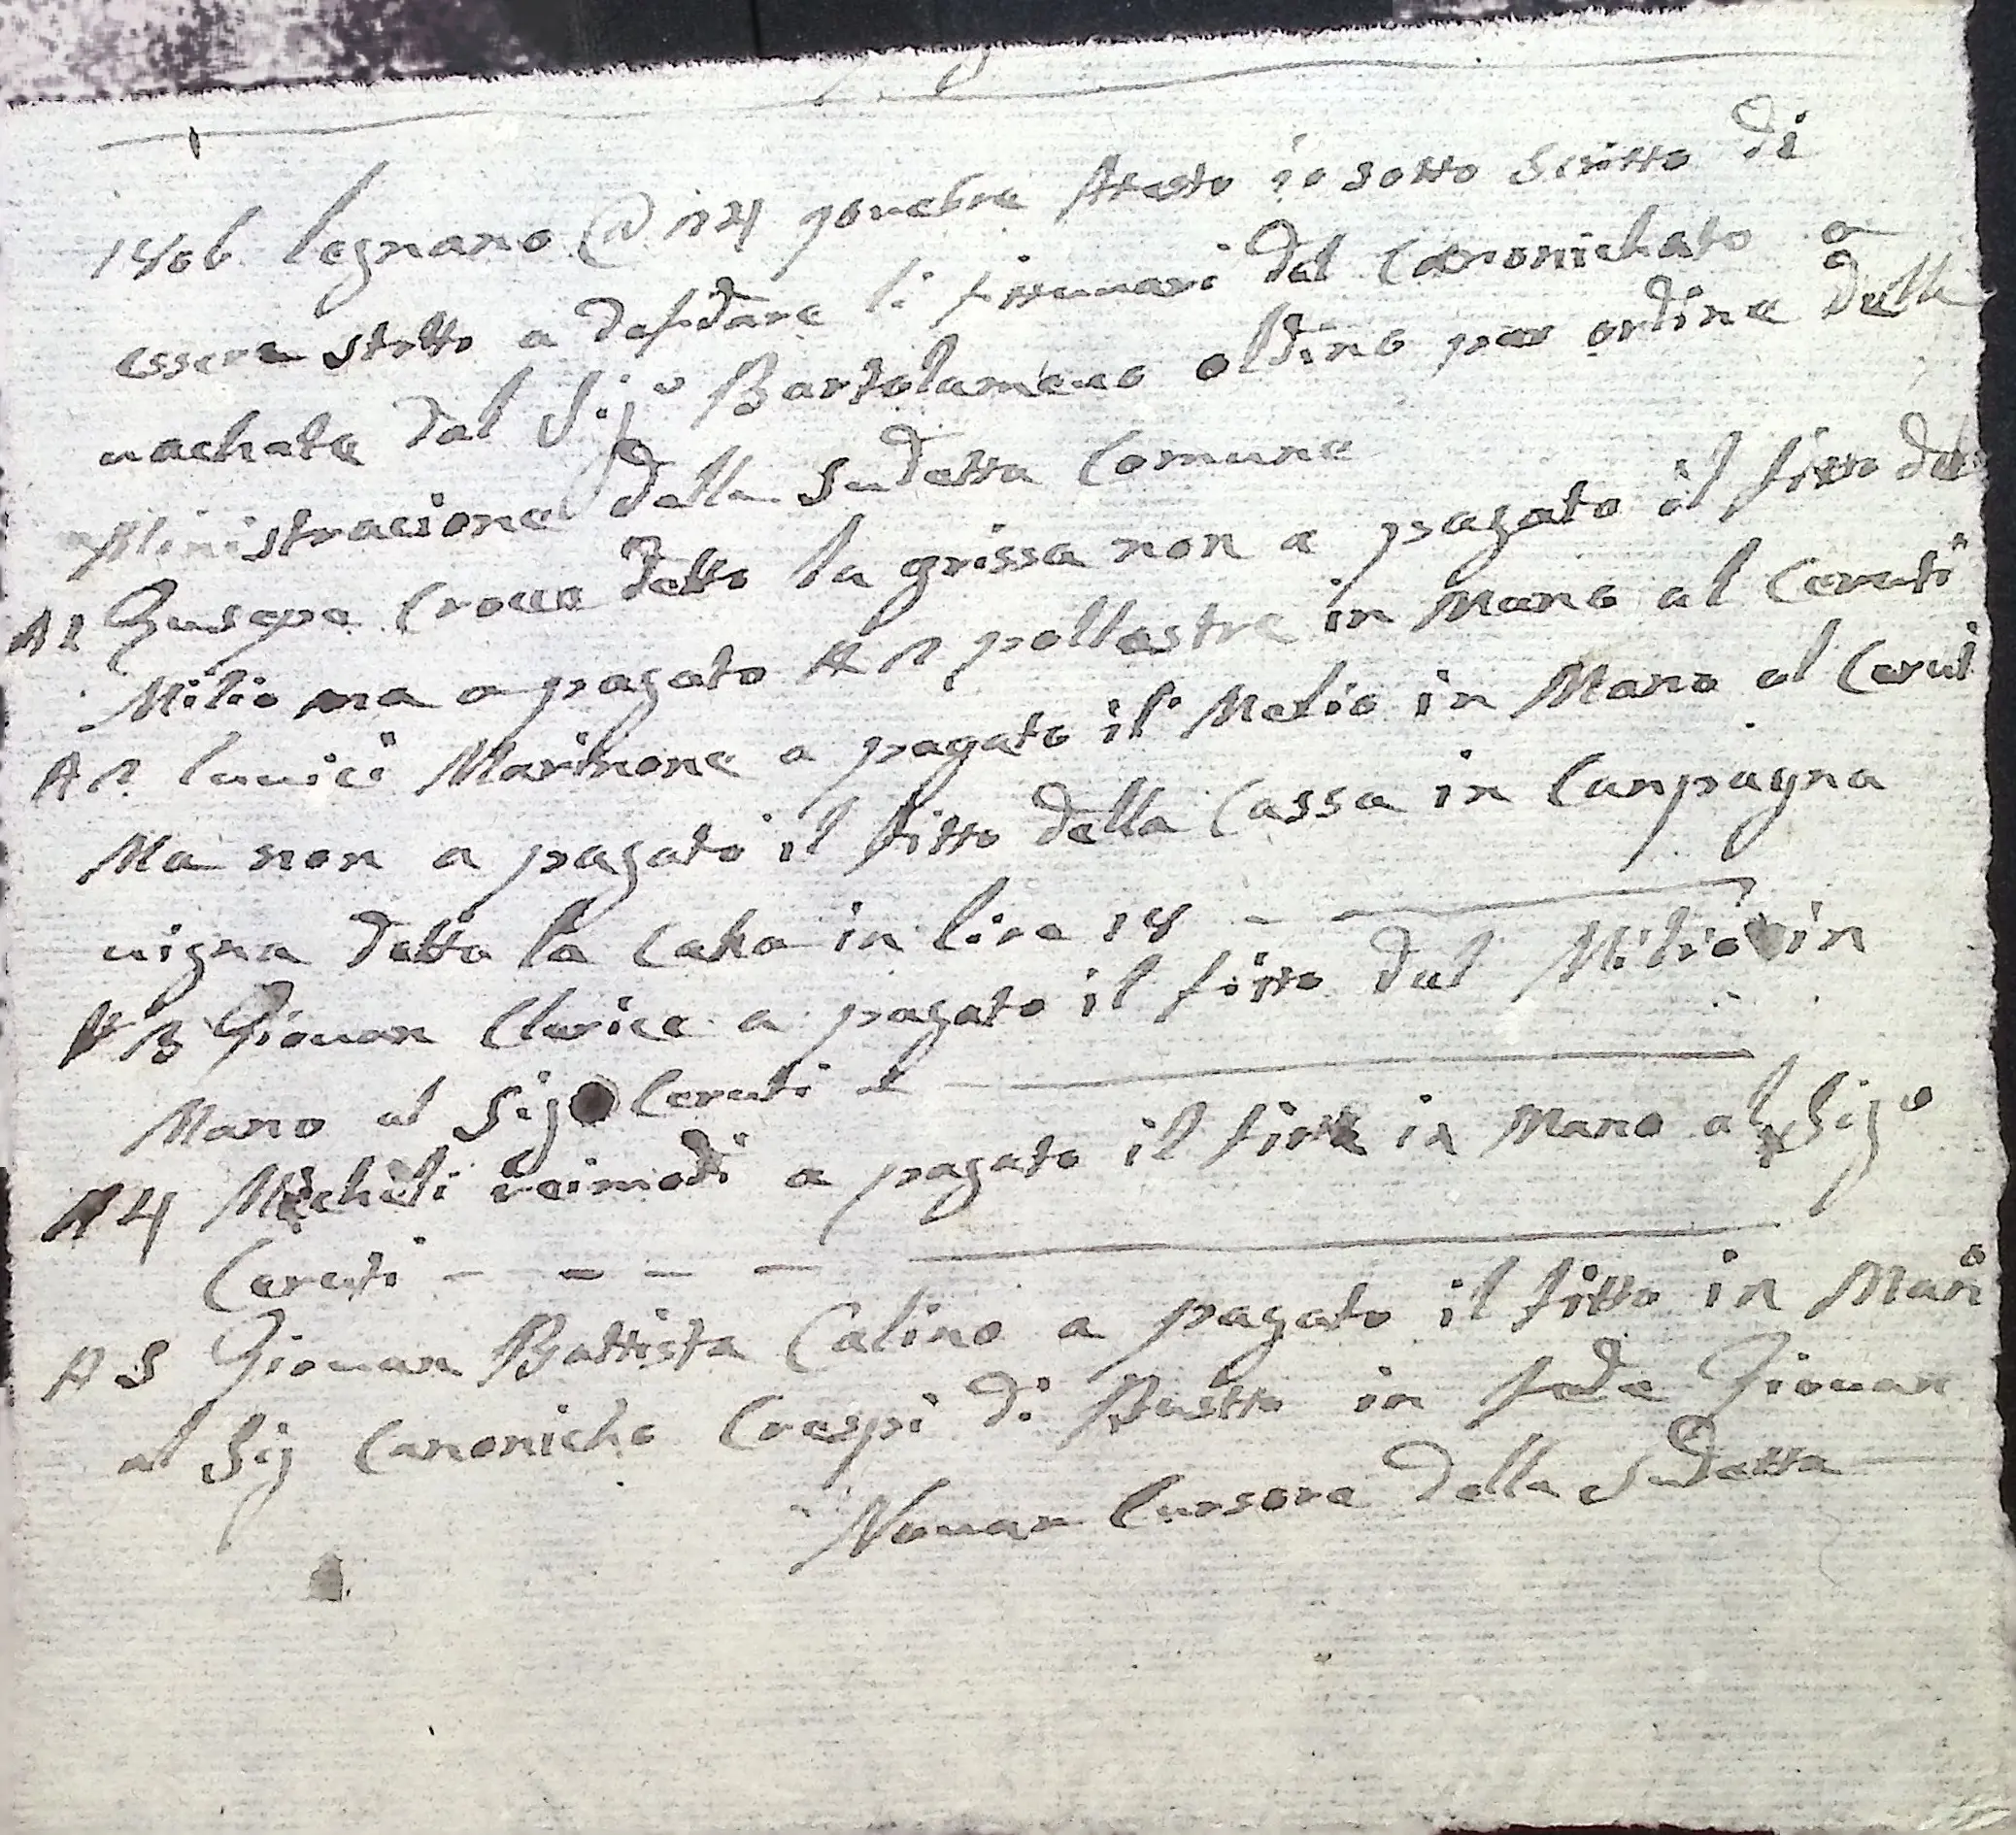 legnano @ 14 9ouebre Attesto io sotto Scritto di
essere statto a desfidare li fittauari del Canonichato a
uachate dal Sigo Bartolameuo oldino per ordine della
Ministracione della Sudetta Comune
Gusepe Croca detto la grissa non a pagato il fitto del
Milio ma a pagato N 2 pollastre in Mano al Ceruti
N 2 luuici Marinone a pagato il Melio in Mano al Ceruti
Ma non a pagato il fitto della Cassa in Canpagna
uigna detta la in lire 18
N 3 Giouan Clerice a pagato il fitto dal Milio in
Mano al Sigo Ceruti
N 4 Micheli reimodi a pagato il fitto in Mano al Sigo
Ceruti - - - -
N 5 Giouan Battista Calino a pagato il fitto in Mano
al Sig Canonicho Crespi di Bustto in fede Giouan
Nouan Cursore della Sudetta